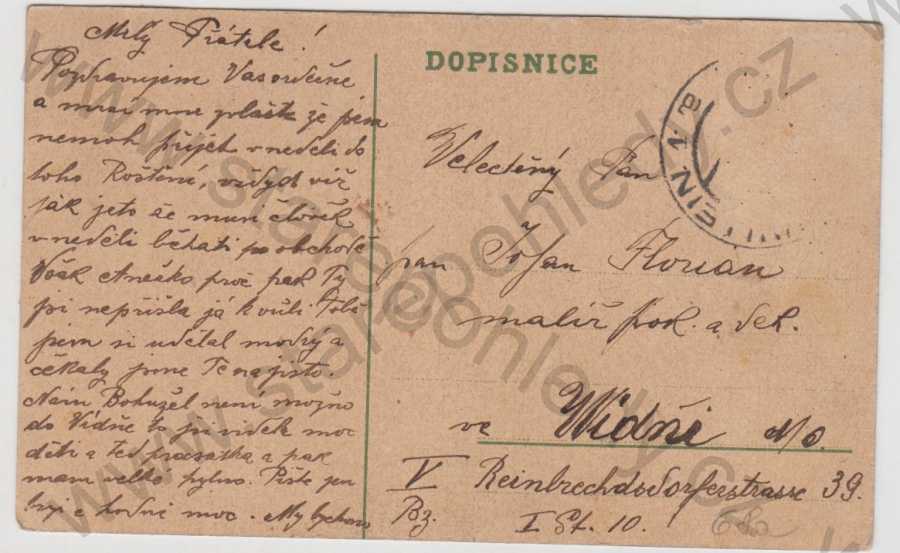 Milý Přátele!
Pozdravujem Vas srdečne
a mrsi mne zvlašte že jsem
nemoh přijet v nedeli do
toho Roštění, vždyt víš
jak jeto še musi člověk
v neděli běhati po obchodě
Však Aneško proč pak Ty
si nepřišla já kvůli Tobě
jsem si udělal modry a
čekaly jsme Te najisto.
Nám Bohužel není možno
do Vídně to si vdek moc
děti a teď prasatka a pak
mam velké  Piste jen
brzi a hodně moc. My bychom
DOPISNICE
EIN 1. 8
Velectěný Pan
pan Johan Florian
malíř pok. a dek.
ve Wídni N/O.
V Reinbrechdsdorferstrasse 39.
Bz. I St. 10.
www.starepohledy.cz